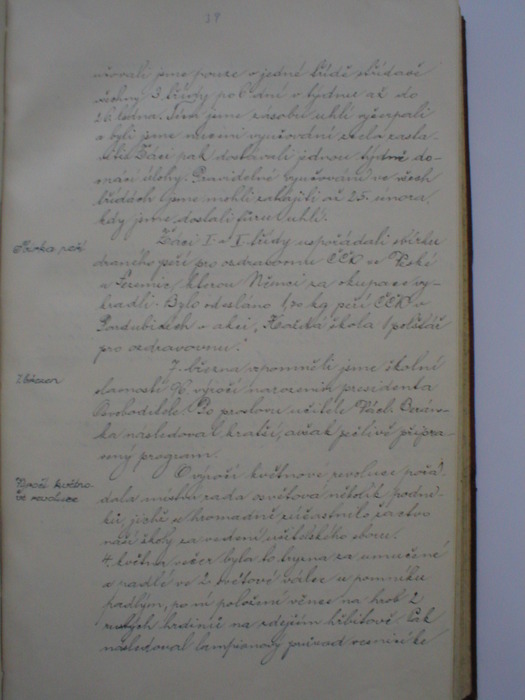 39
učovali jsme pouze v jedné třídě střídavě
všechny 3 třídy po 2 dni v týdnu až do
26. ledna. Tím jsme zásobu uhlí vyčerpali
a byli jsme nuceni vyučování zcela zasta-
viti. Žáci pak dostávali jednou týdně do-
mácí úlohy. Pravidelné vyučování ve všech
třídách jsme mohli zahájiti až 25. února,
kdy jsme dostali fůru uhlí.
Sbírka peří
Žáci I. a II. třídy uspořádali sbírku
draného peří pro ozdravovnu ČČK ve
u Jesenic, kterou Němci za okupace vy-
kradli. Bylo odesláno kg peří ČČK v
Pardubicích v akci „Každá škola 1 polštář
pro ozdravovnu."
7. březen
7. března vzpomněli jsme školní
slavností 96. výročí narozenin presidenta
Osvoboditele. Po proslovu učitele Václ. Berán-
ka následoval kratší, avšak pečlivě připra-
vený program.
Výročí květno-
vé revoluce
O výročí květnové revoluce pořá-
dala místní rada osvětová několik podni-
ků, jichž se hromadně zúčastnilo žactvo
naší školy za vedení učitelského sboru.
4. května večer byla to tryzna za umučené
a padlé ve 2. světové válce u pomníku
padlým, po ní položení věnce na hrob 2
rudých hrdinů na zdejším hřbitově. Pak
následoval lampionový průvod vesnicí ke